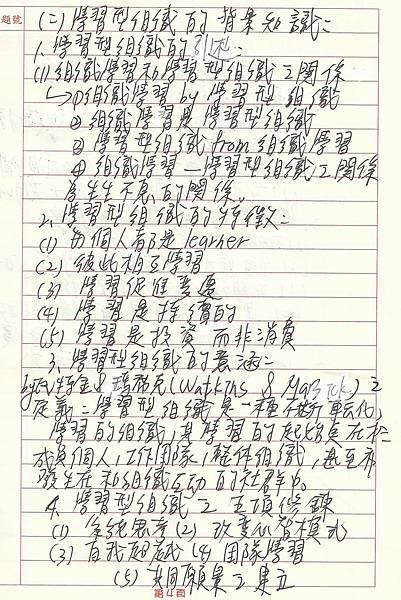 題號
(二)學習型組織的背景知識:
1.學習型組織的
(1)組織學習和學習型組織之關係
↳①組織學習 by 學習型組織
②組織學習是學習型組織
③學習型組織 from 組織學習
④組織學習—學習型組織之關係
為生生不息的關係。
2.學習型組織的特徵:
(1) 每個人都是learner
(2) 彼此相互學習
(3) 學習促進變遷
(4) 學習是持續的
(5) 學習是投資而非消費
3.學習型組織的意涵:
by瓦特金&瑪席克(Watkins & Marsick)之
定義:學習型組織是一種不斷轉化,
學習的組織,其學習的起始點在於
成員個人,工作團隊,整体組織,甚至亦
發生在和組織互動的社群中。
4.學習型組織之五項修鍊
(1) 系統思考(2) 改變心智模式
(3) 自我超越(4) 團隊學習
(5) 共同願景之建立
第4面